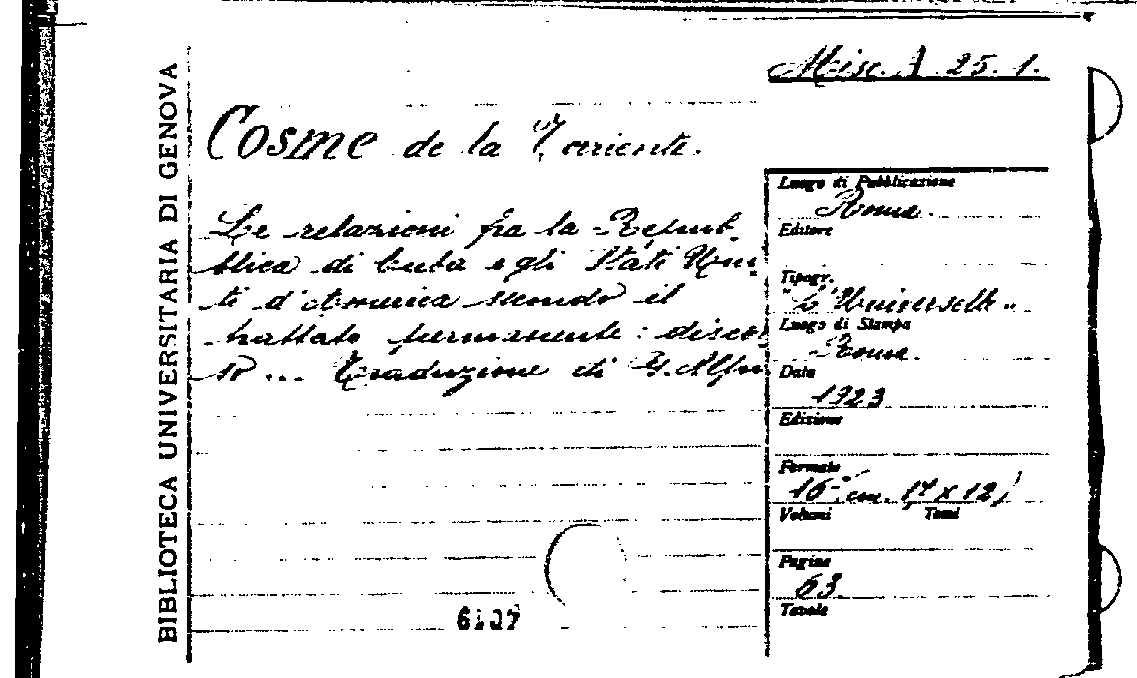 BIBLIOTECA UNIVERSITARIA DI GENOVA
Misc. A. 25. 1.
Cosme de la Torriente.
Le relazioni fra la Repub-
blica di Cuba e gli Stati Uni-
ti d'America secondo il
trattato permanente: discor-
so ... Traduzione di G. Alfon
Luogo di Pubblicazione
Roma.
Editore
Tipogr.
"L'Universelle"
Luogo di Stampa
Roma.
Data
1923
Edizione
Formato
16° (cm. 17 x 12)
Volumi Tomi
Pagine
63.
Tavole